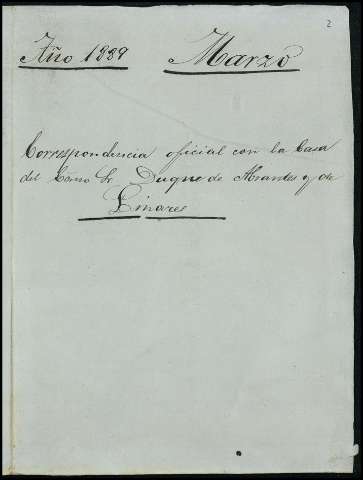 2
Año 1889 Marzo
Correspondencia oficial con la Casa
del Exmo Sr. Duque de Abrantes y de
Linares